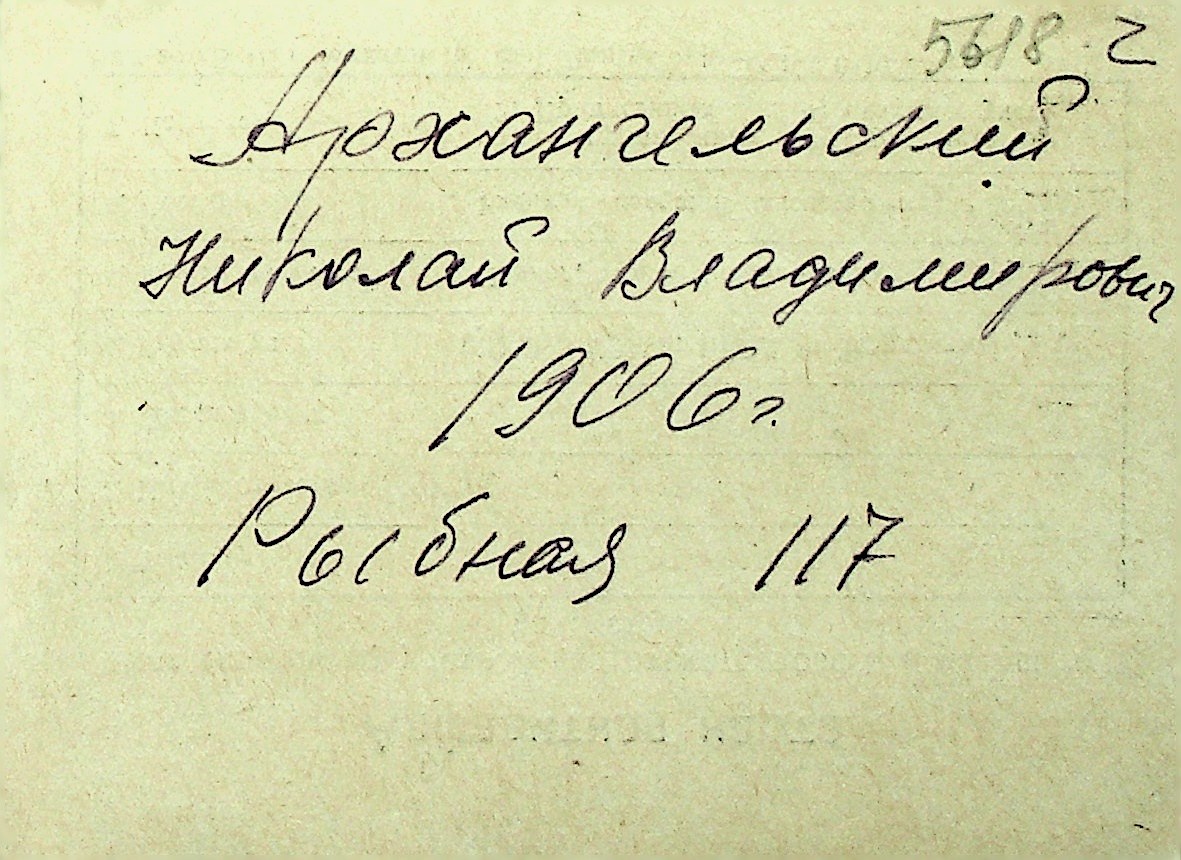 5618 ч
Архангельский
Николай Владимирович
1906г.
Рыбная 117